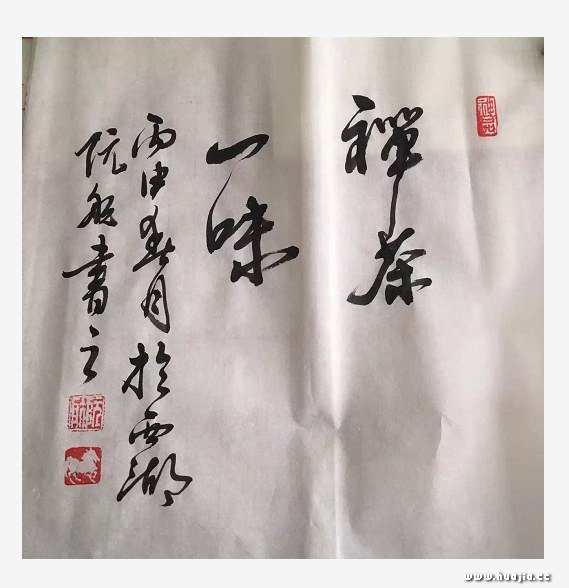 禪茶
一味
丙申春月於西湖
阮
書之
www.huajia.cc